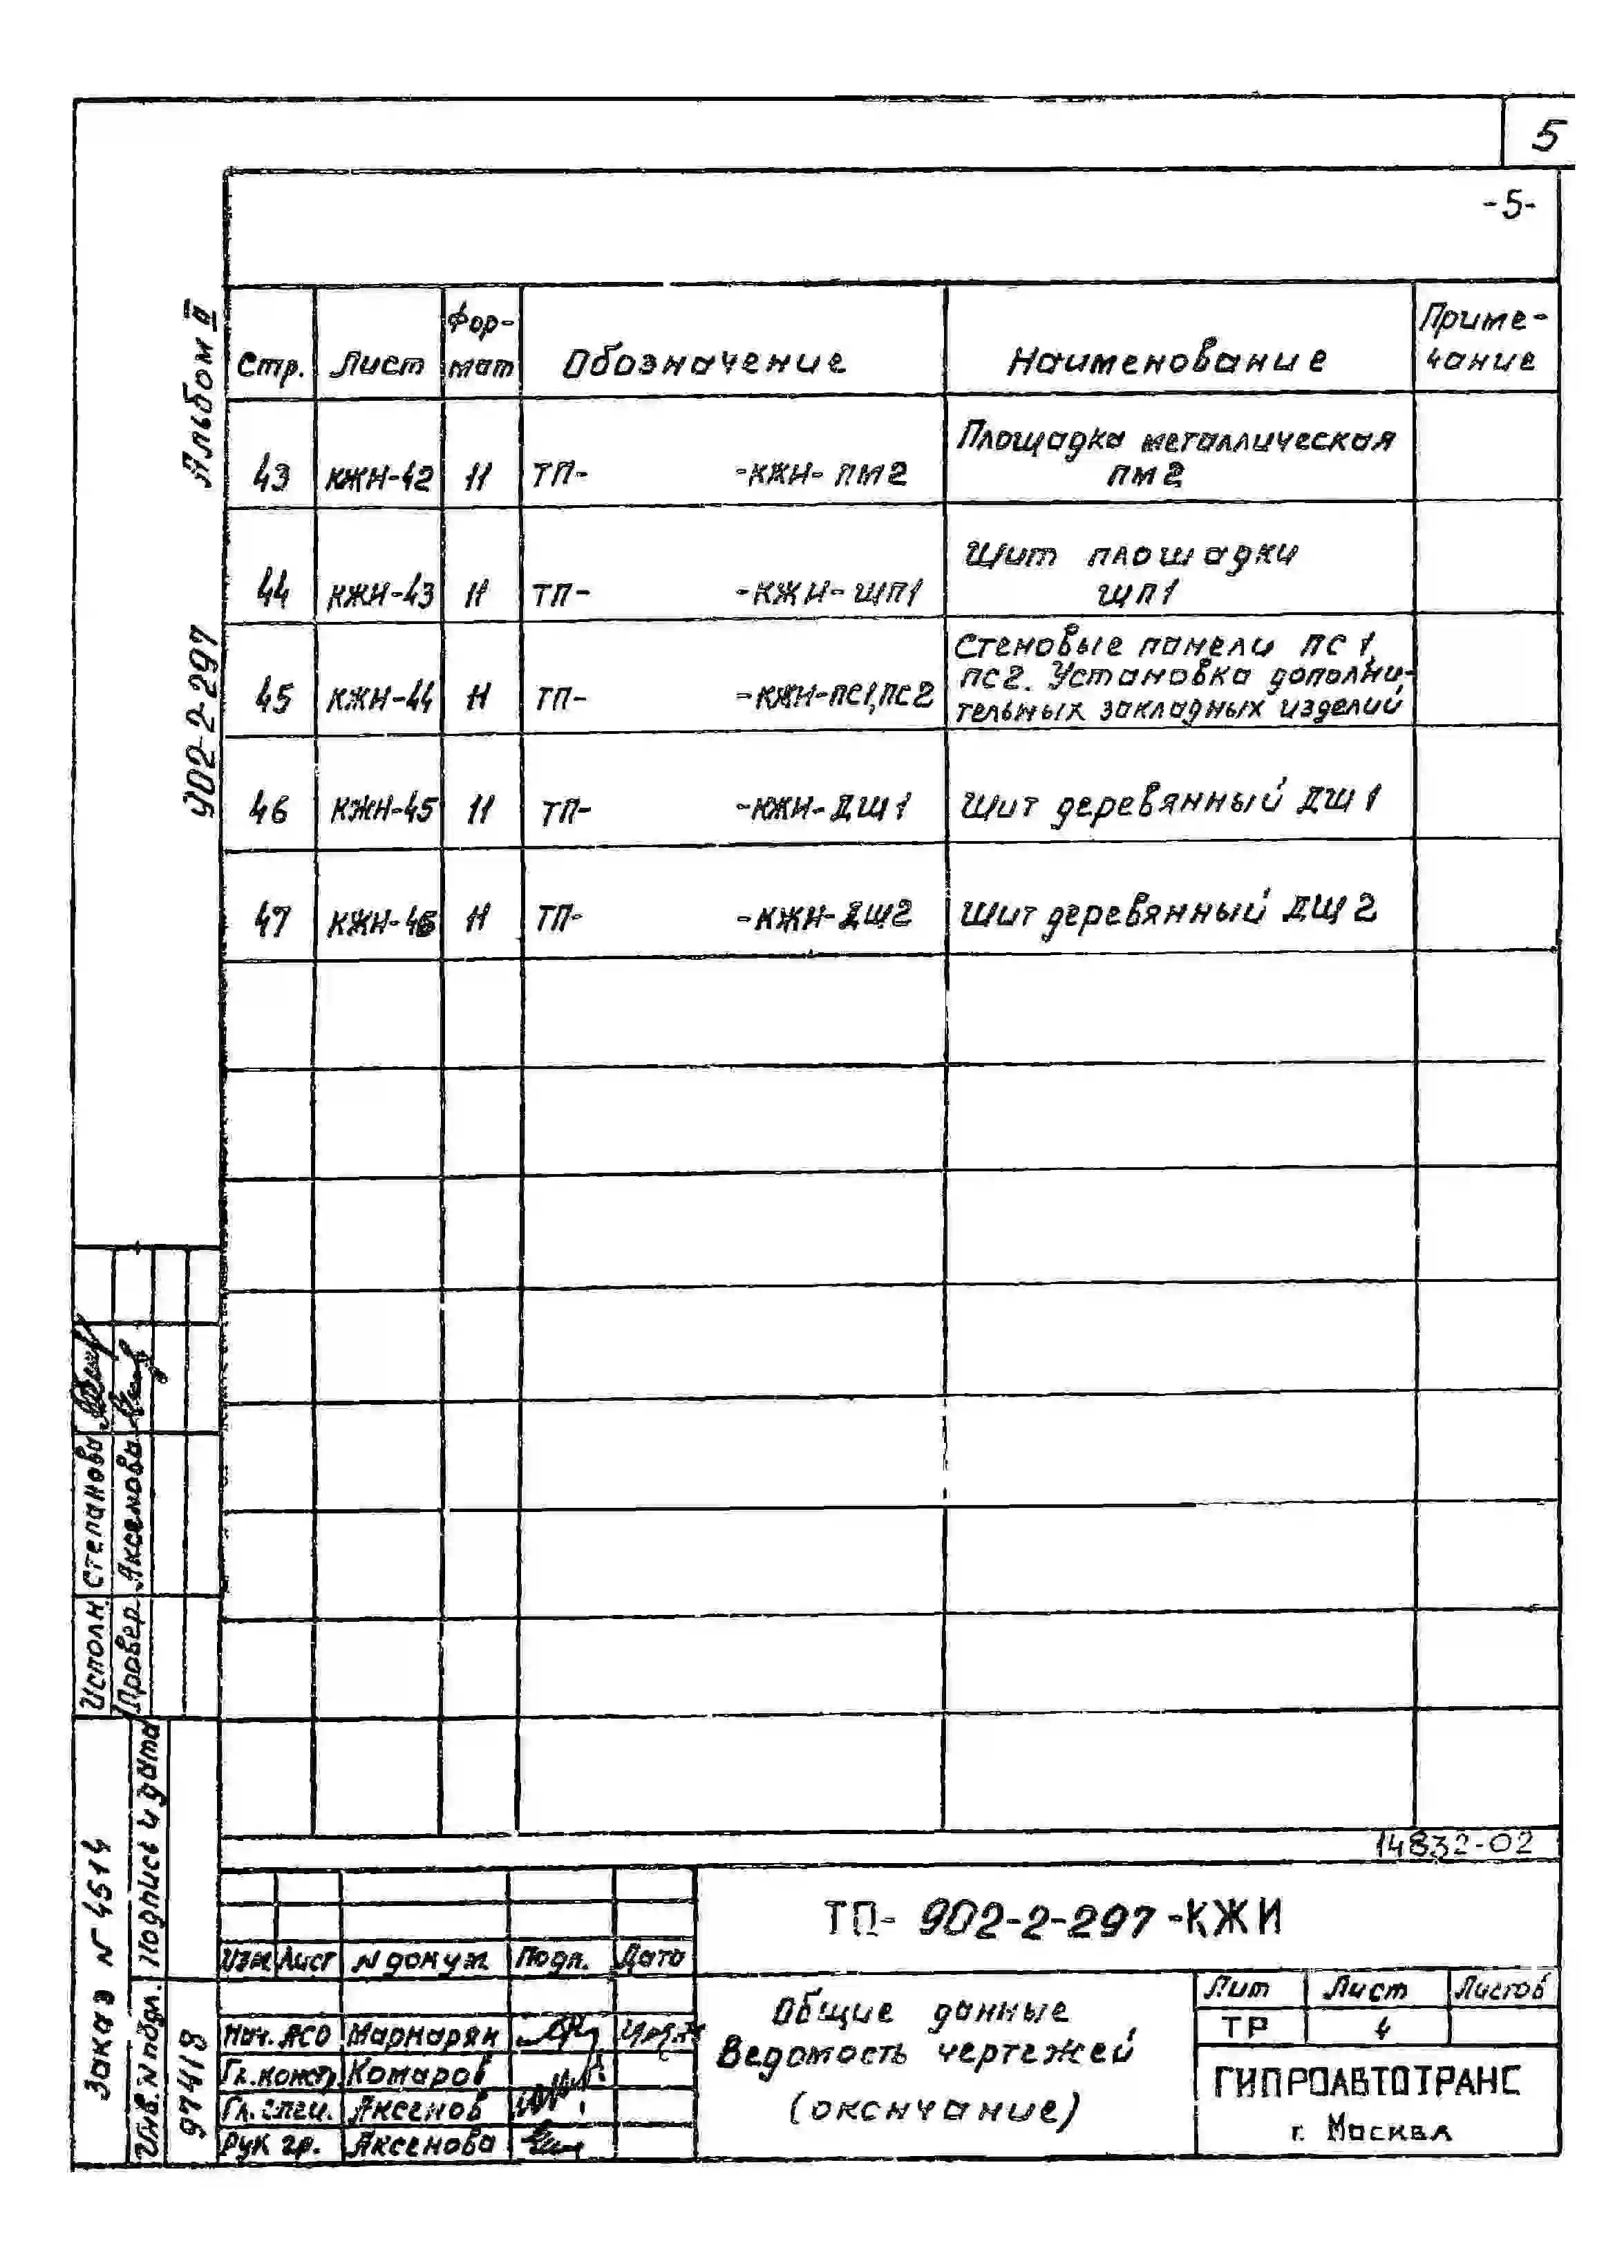 5
-5-
Альбом II
902-2-297
Стр. Лист Фор-мат Обозначение Наименование Приме-чание
43 КЖИ-42 11 ТП- -КЖИ- ПМ2 Площадка металлическая
ПМ2
44 КЖИ-43 11 ТП- -КЖИ-ЩП1 Щит площадки
ЩП1
45 КЖИ-44 11 ТП- -КЖИ-ПС1,ПС2 Стеновые панели ПС1,
ПС2. Установка дополни-
тельных закладных изделий
46 КЖИ-45 11 ТП- -КЖИ-ДЩ1 Щит деревянный ДЩ1
47 КЖИ-46 11 ТП- -КЖИ-ДЩ2 Щит деревянный ДЩ2
14832-02
ТП- 902-2-297-КЖИ
Изм Лист N докум Подп. Дата
Общие данные
Ведомость чертежей
(окончание)
Лит Лист Листов
ТР 4
ГИПРОАВТОТРАНС
г. Москва
Нач. АСО Маркарян
Гл. конст. Комаров
Гл. спец. Аксенов
Рук гр. Аксенова
Исполн Степанова
Провер. Аксенова
Заказ N 4514
Инв. N подл. Подпись и дата
97418